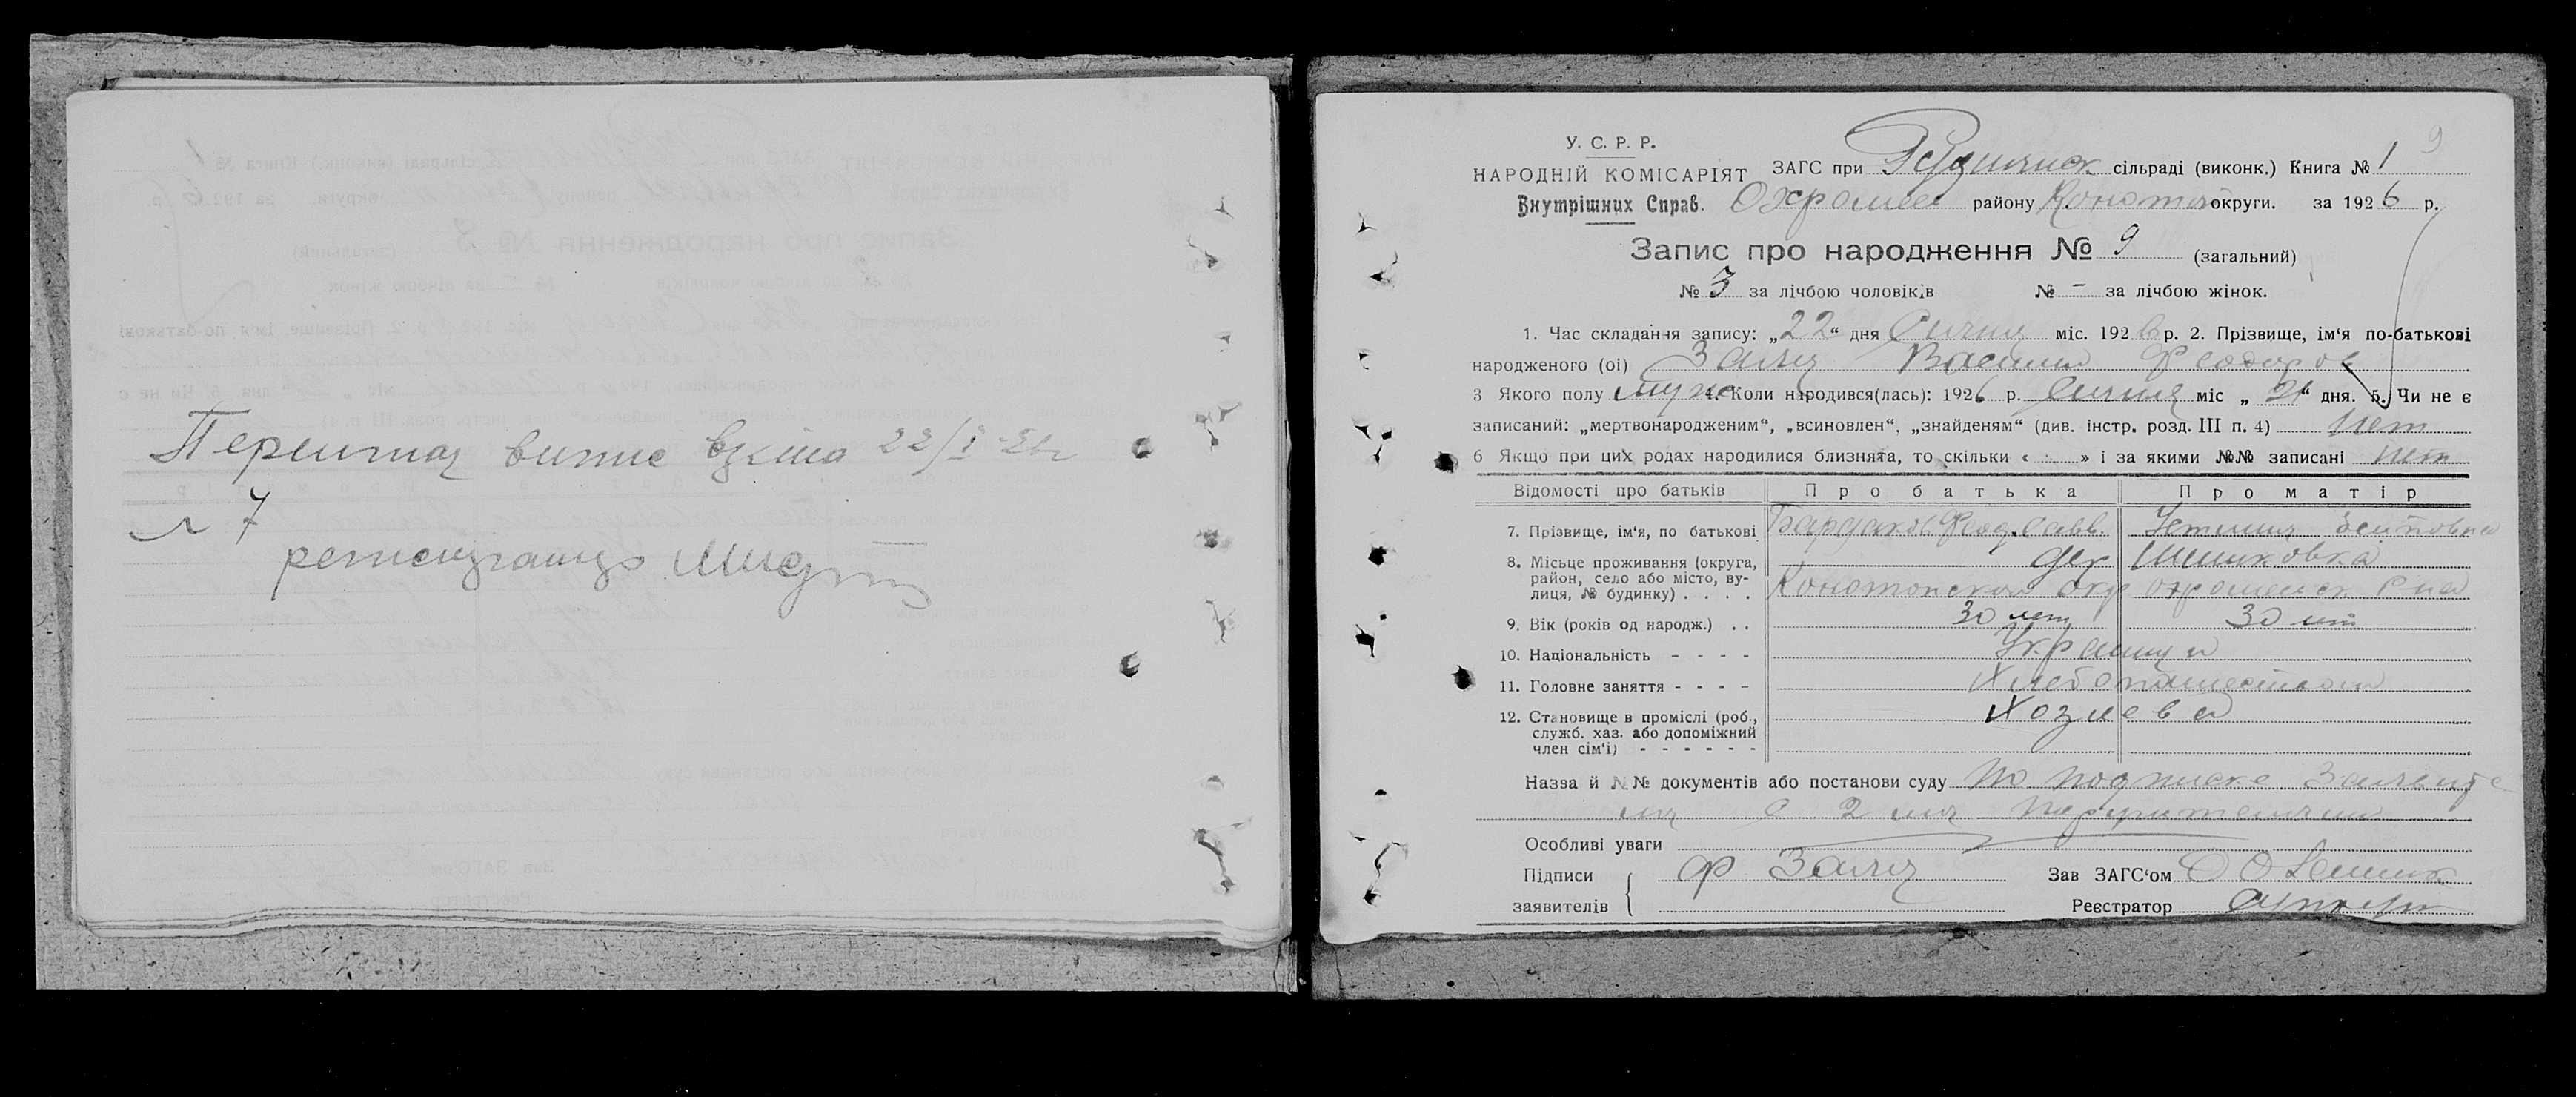 Первичная випис взята 22/I-26
№ 7
9
У. С. Р. Р.
НАРОДНІЙ КОМІСАРІЯТ
Внутрішних Справ.
ЗАГС при сільраді (виконк.) Книга № 1
району Конотоп округи. за 1926 р.
Запис про народження № 9 (загальний)
№ 3 за лічбою чоловіків № - за лічбою жінок.
1. Час складання запису: „22“ дня Січня міс. 1926 р. 2. Прізвище, ім‘я по-батькові
народженого (оі) Заяц Василий Феодоров
3 Якого полу муж 4. Коли народився(лась): 1926 р. Січня міс „21“ дня. 5. Чи не є
записаний: „мертвонародженим“, „всиновлен“, „знайденям“ (див. інстр. розд. III п. 4) нет
6 Якщо при цих родах народилися близнята, то скільки « - » і за якими №№ записані нет
Відомості про батьків Про батька Про матір
7. Прізвище, ім‘я, по батькові Феод. Савв. Устиния Осиповна
8. Місьце проживання (округа, район, село або місто, вулиця, № будинку) . . . . дер Шишковка
Конотопской окр р на
9. Вік (років од народж.) . . 30 лет 30 лет
10. Національність - - - - Украинци
11. Головне заняття - - - - Хлебопашеством
12. Становище в проміслі (роб., служб. хаз. або допоміжний член сім‘і) - - - - - - Хозяева
Назва й №№ документів або постанови суду По подписке
с 2 мя поручителями
Особливі уваги
Підписи заявителів Ф Заяц
Зав ЗАГС‘ом
Реєстратор